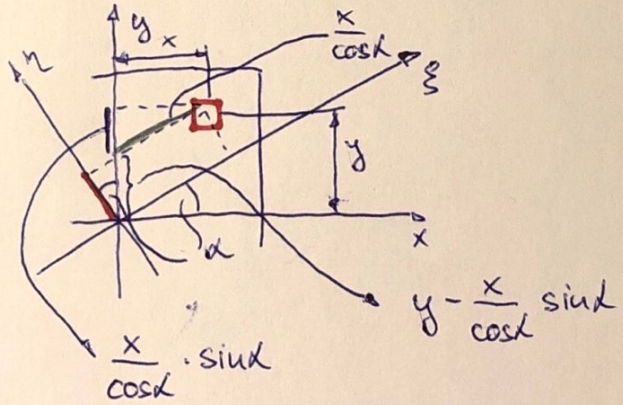 y
x
x/cosα
η
ξ
y
α
x
y - x/cosα sinα
x/cosα · sinα